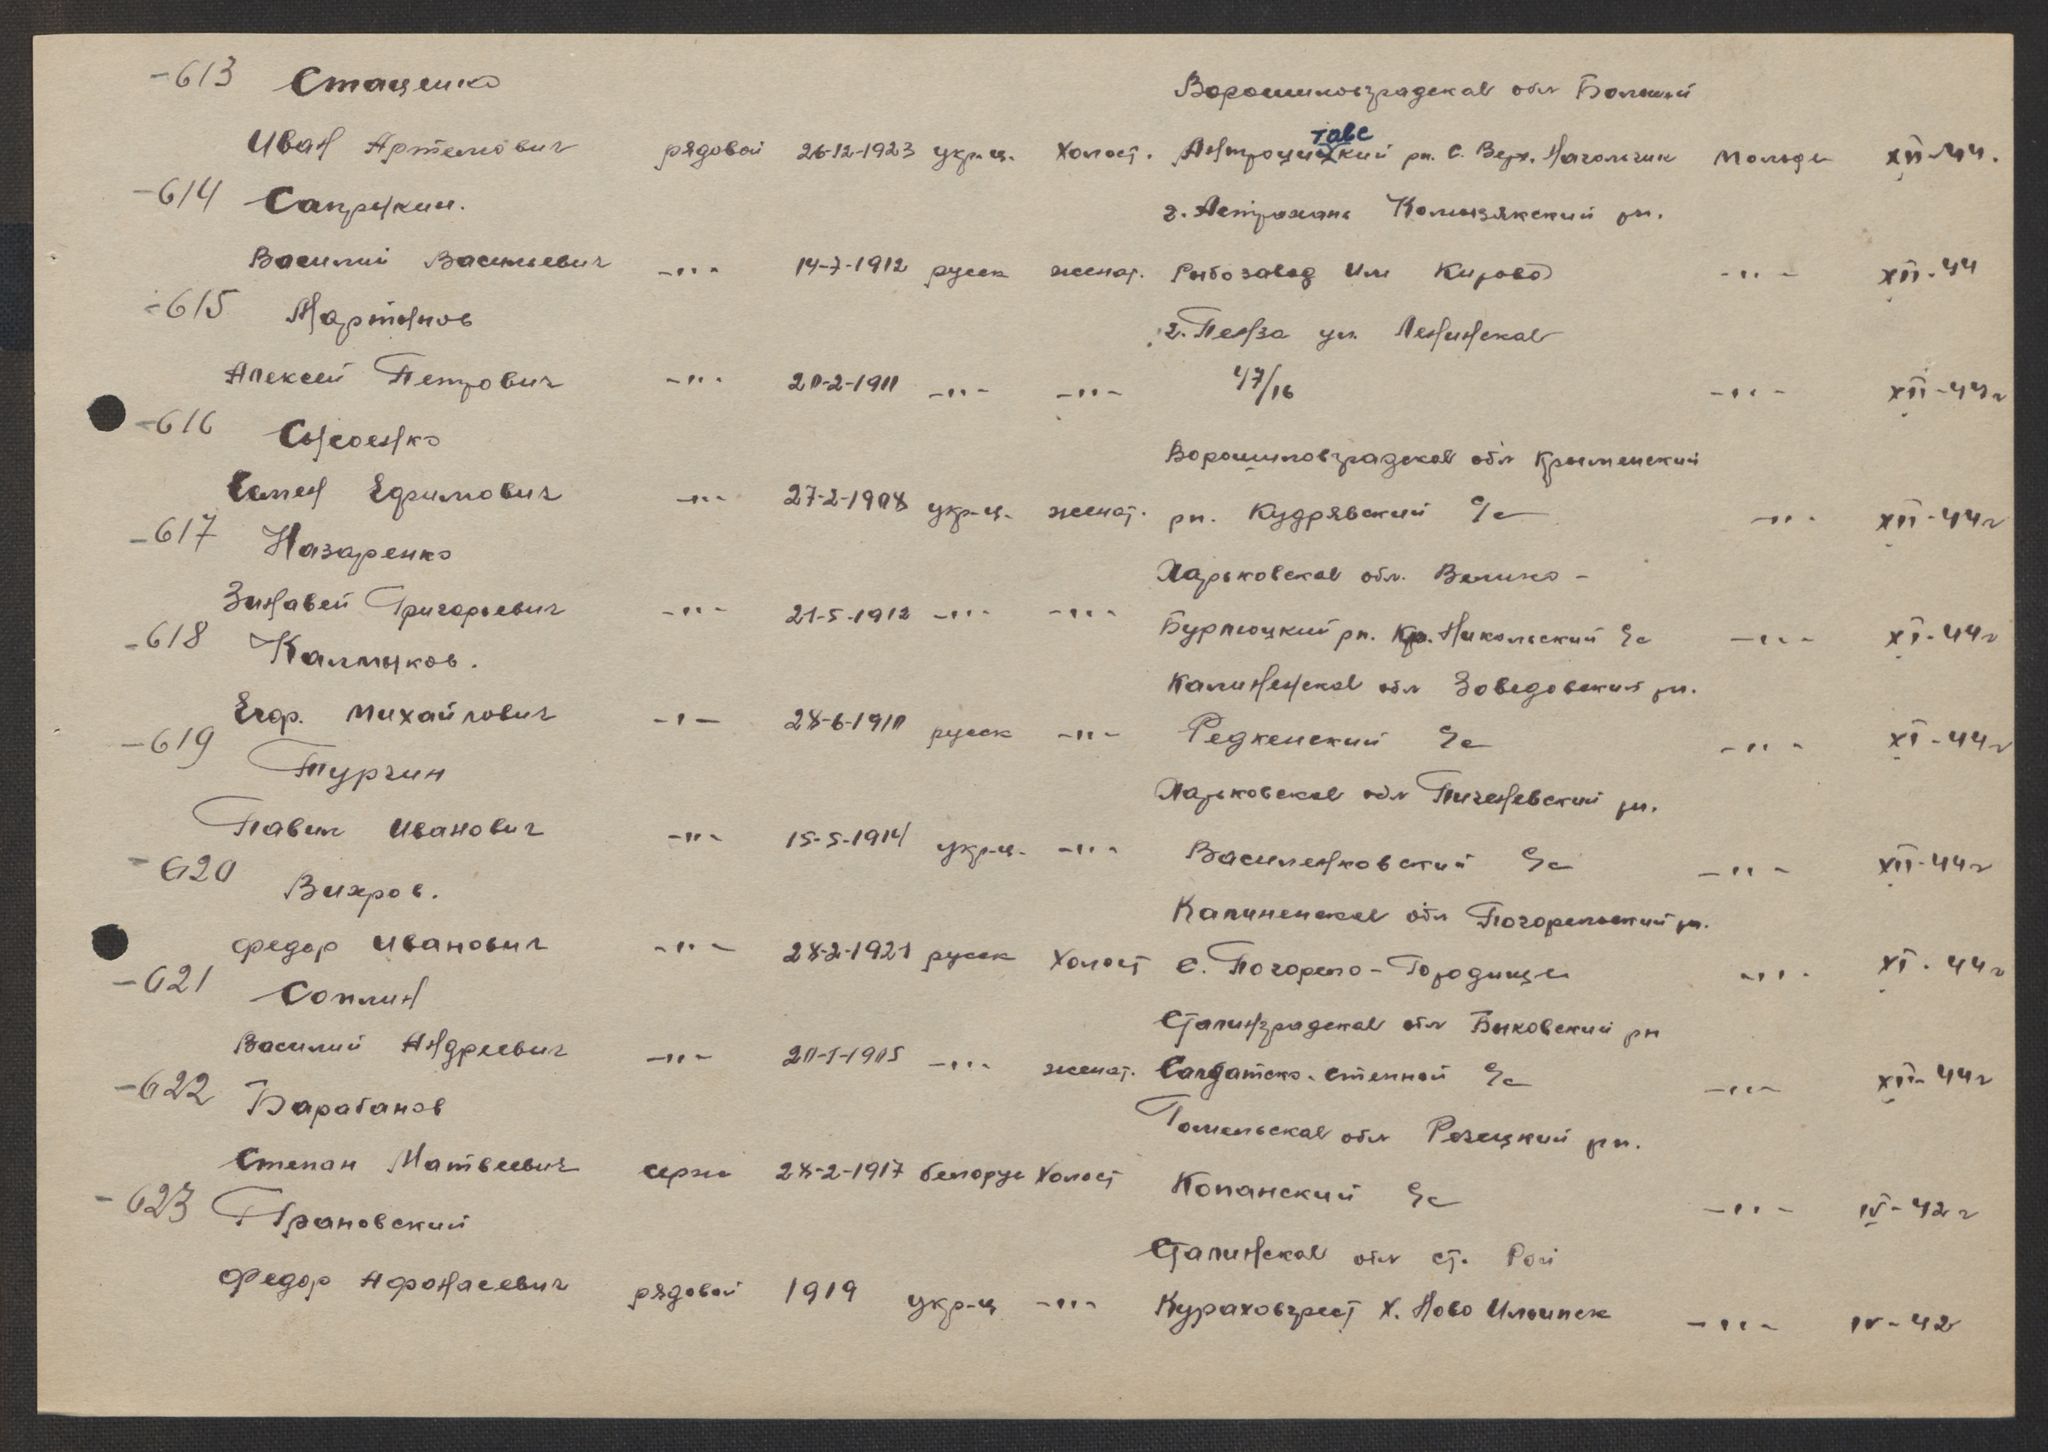 -613 Стаценко Ворошиловградская обл Больший
таве
Иван Артемович рядовой 26-12-1923 укр-ц. Холост. Антроцитский рн. с. Верх. Нагольчик Мольде XII-44.
-614 Сапрыкин. г. Астрахань Колызякский рн.
Василий Васильевич -"- 14-7-1912 русск женат. Рыбозавод им Кирова -"- XII-44
-615 Мартынов г. Пенза ул. Ленинская
Алексей Петрович -"- 20-2-1911 -"- -"- 47/16 -"- XII-44г
-616 Ворошиловградская обл Крыменский
Семен Ефимович -"- 27-2-1908 укр-ц. женат. рн. Кудрявский с/с -"- XII-44г
-617 Назаренко Харьковская обл. Велико-
Зиновей Григорьевич -"- 21-5-1912 -"- -"- Бурлюцкий рн. Кр. Никольский с/с -"- XI-44г
-618 Калмыков. Калиненская обл Зоведовский рн.
Егор. Михайлович -"- 28-6-1910 русск -"- Редкенский с/с -"- XI-44г
-619 Турчин Харьковская обл Пиченевский рн.
Павел Иванович -"- 15-5-1914 укр-ц. -"- Василенковский с/с -"- XII-44г
-620 Вихров. Калиненская обл Погорельский рн.
Федор Иванович -"- 28-2-1921 русск Холост с. Погорело-Городище -"- XI-44г
-621 Соплин Сталинградская обл Быковский рн
Василий Андреевич -"- 20-1-1905 -"- женат. Салдатско-степной с/с -"- XII-44г
-622 Барабанов Гомельская обл Речецкий рн.
Степан Матвеевич серж 28-2-1917 белорус Холост Копанский с/с -"- IV-42г
-623 Грановский Сталинская обл ст. Рои
Федор Афонасевич рядовой 1919 укр-ц -"- Кураховгрест Х. Ново Ильинск -"- IV-42